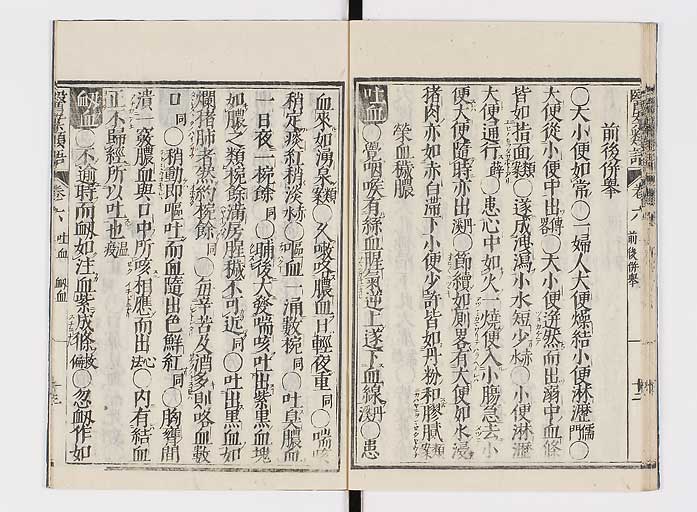 前後併擧
○大小便如常○一婦人大便燥結小便淋瀝儒門○
大便從小便中出傳○大小便淫然而出溺中血條
皆如指面類○遂成洩瀉小水短少赤○小便淋瀝
大便通行薛○患心中如火一燒便入小腸急去小
便大便隨時亦出○節續如厠畧有大便如水浸
猪肉亦如赤白滯下小便少許皆如丹粉和膠膩類
榮血穢膿
吐血○覺咽喉有絲血腥氣逆上遂下血線○患
血來如湧泉類○久嗽咳膿血日輕夜重同○喘咳
稍定痰紅稍淡赤○嘔血一涌數椀同○吐臭膿血
一日夜一椀餘同○晡後大發喘咳吐出紫黑血塊
如膿之類椀餘滿房腥穢不可近同○吐出黑血如
爛猪肺者然約椀餘同○毎辛苦及酒多則咯血數
口同○稍動即嘔吐而血隨出色鮮紅同○胸癰間
潰一竅膿血與口中所咳相應而出心法○内有結血
正不歸經所以吐也溫疫
衂血○不逾時而衂如注血紫成條○忽衂作如
醫案類語 卷六 前後併擧 十二
醫案類語 卷六 吐血 衂血 十三